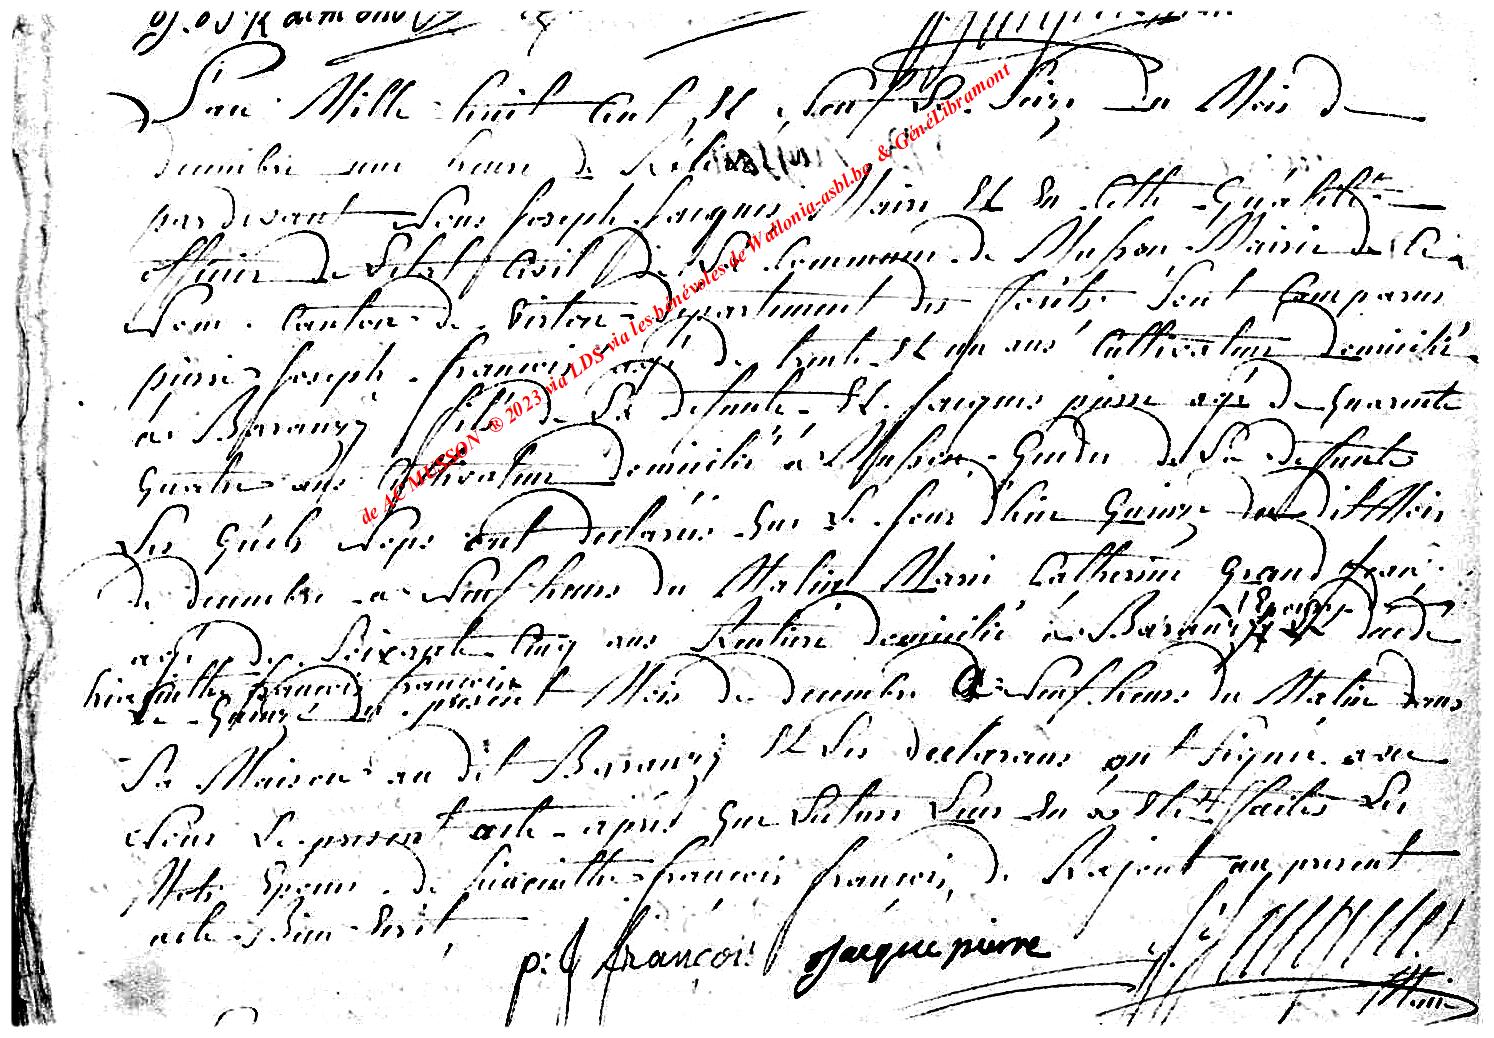 J. Raimond
L'an Mille huit cent et neuf le Seize du Mois de
decembre une heure de
par devant Nous Joseph Jacques Maire et en Cette Qualité
officier de l'etat Civil de la Commune de Musson Mairie de Ce
Nom Canton de Virton departement des forêts Sont Comparus
pierre Joseph francois agé de trente et un ans Cultivateur domicilié
a Baranzy fils de La defunte et Jacques pierre agé de quarente
quatre ans Cultivateur domicilié a Musson Gendre de La defunte
Les quels Nous ont declarés que Le Jour d'hier quinze du dit Mois
de decembre a Neuf heures du Matin Marie Catherine Grand Jean
agé de Soixante Cinq ans Rentiere domicilié a Baranzy est décédé
Epouse de
hiacinthe francois francois
Le quinze du present Mois de decembre a Neuf heures du Matin dans
Sa Maison au dit Baranzy et Les declarans ont signé avec
Nous Le present acte apres que Lecture Leur en a été faites Les
Mots Epouse de hiacinthe francois francois de Rajout au present
acte Bien Ecrit
p: J françois Jacque pierre
Maire
de AC MUSSON ® 2023 via LDS via les bénévoles de Wallonia-asbl.be & GénéLibramont